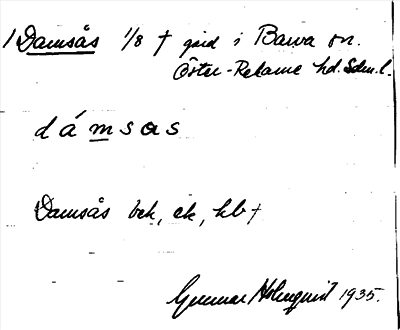 1 Damsås 1/8 † gård i Barva sn.
Öster-Rekarne hd. Sdm. l.
dámsɑs
Damsås bek, ek, hb †
Gunnar Holmquist 1935.